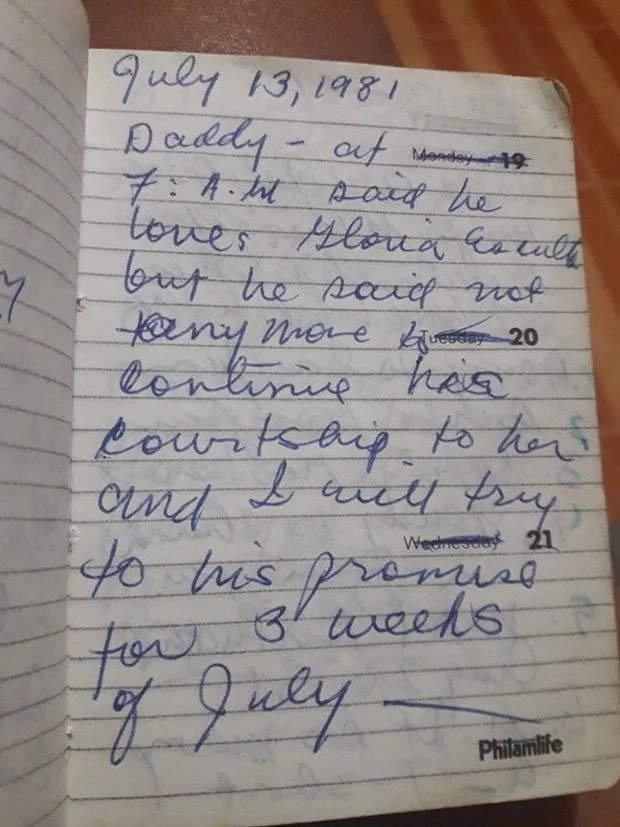 July 13, 1981
Daddy - at Monday 19
7: A.M said he
loves Gloria
but he said not
any more to Tuesday 20
continue his
courtship to her
and I will try
Wednesday 21
to his promise
for 3 weeks
of July —
Philamlife